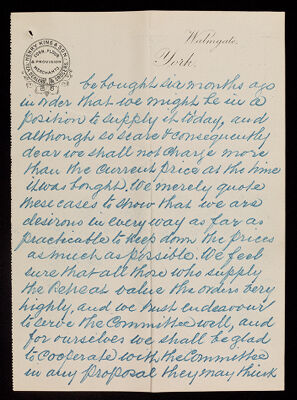 HENRY KING & SON
CORN, FLOUR
& PROVISION
MERCHANTS
Walmgate,
York.
be bought six months ago
in order that we might be in a
position to supply it today, and
although so scarce & consequently
dear we shall not charge more
than the current price at the time
it was bought. We merely quote
these cases to show that we are
desirous in every way as far as
practicable to keep down the prices
as much as possible. We feel
sure that all those who supply
the Retreat value the orders very
highly, and we trust endeavour
to serve the Committee well, and
for ourselves we shall be glad
to cooperate with the Committee
in any proposal they may think